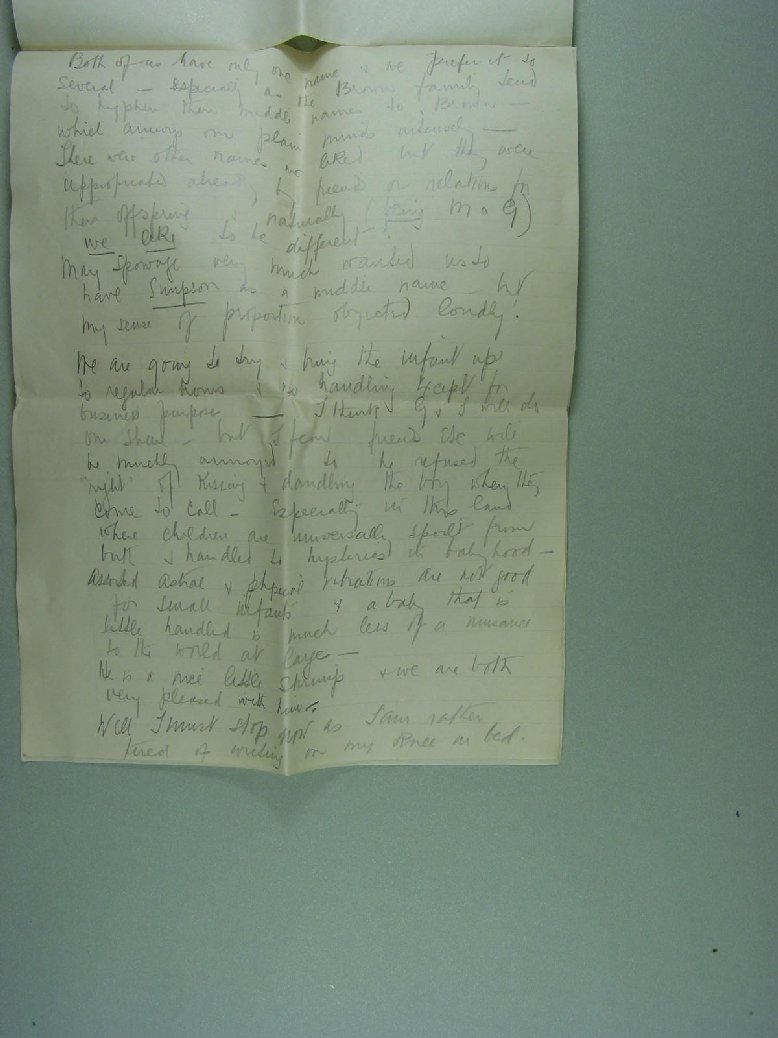 Both of us have only one name & we prefer it so
several - Especially as the Brown family tend
to hyphen their middle names to Brown -
which annoys our plain minds intensely -
There were other names we liked but they were
appropriated already by friend or relations for
their offspring & naturally (being M & G)
we like to be different.
May Spowage very much wanted us to
have Simpson as a middle name - but
my sense of proportion objected loudly!
We are going to try & bring the infant up
to regular hours & no handling Except for
business purposes — I think G & I will do
our share - but I fear friends Etc will
be muchly annoyed to be refused the
"right" of Kissing & dandling the boy when they
come to call - Especially in this land
where children are universally spoilt from
birth & handled to hysterics in babyhood -
Assorted astral & physical vibrations are not good
for small infants & a baby that is
little handled is much less of a nuisance
to the world at large -
He is a nice little shrimp & we are both
very pleased with him.
Well I must stop now as I am rather
tired of writing on my Knee in bed.